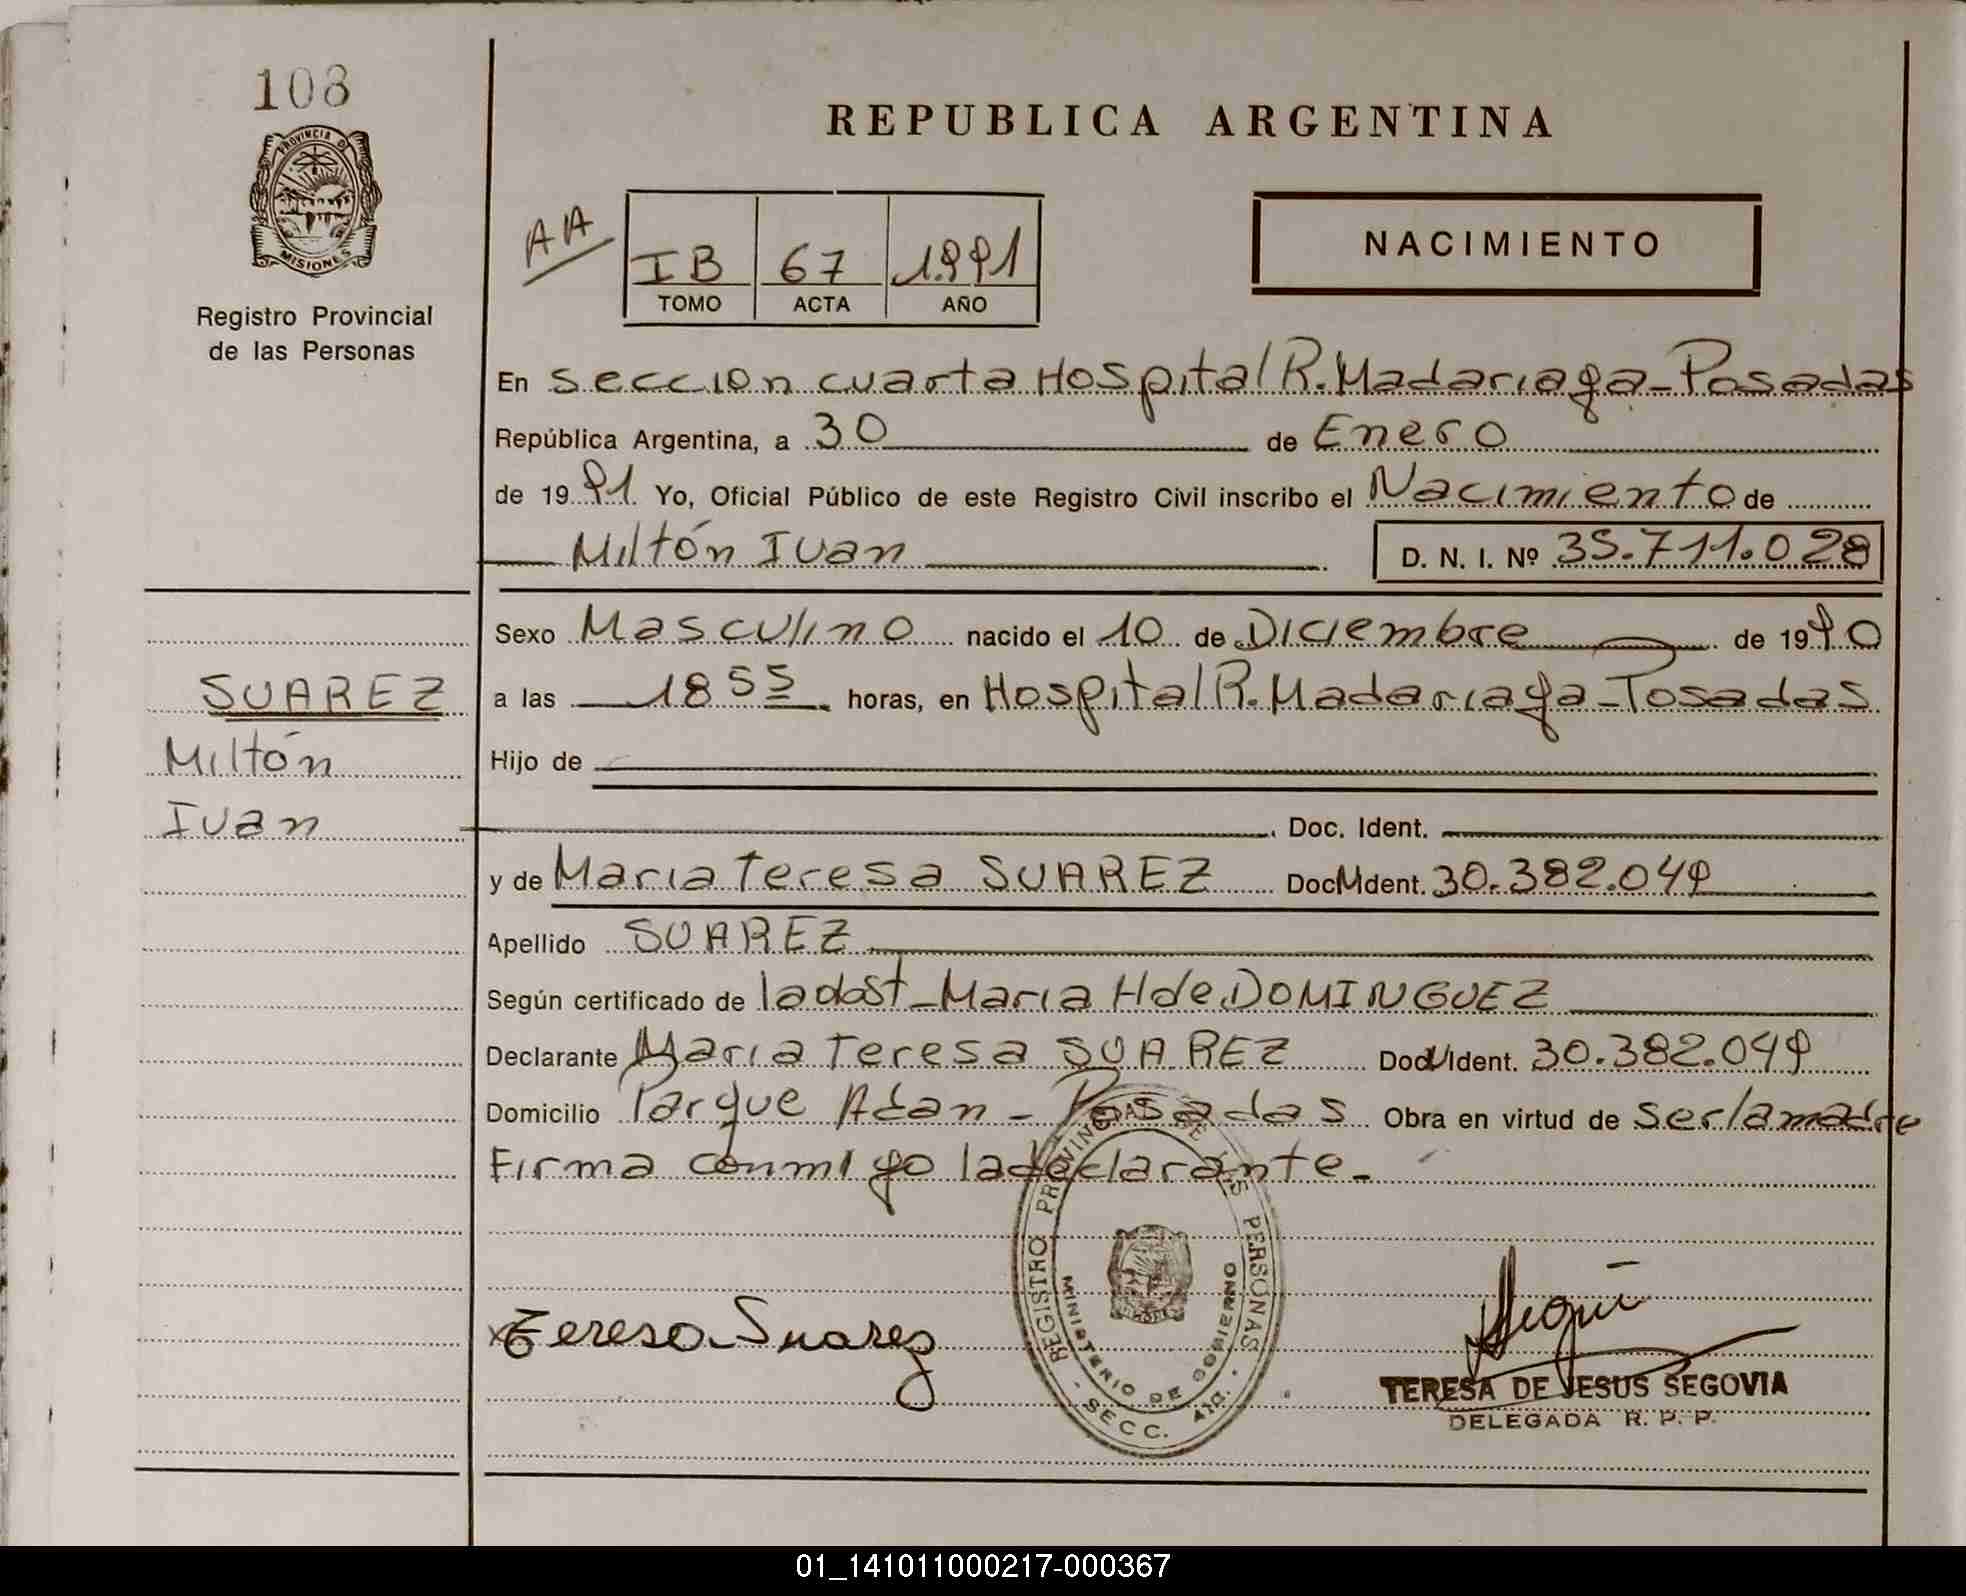 108
PROVINCIA DE
MISIONES
Registro Provincial
de las Personas
REPUBLICA ARGENTINA
AA
IB 67 1.991
TOMO ACTA AÑO
NACIMIENTO
En seccion cuarta Hospital R. Madariaga - Posadas
República Argentina, a 30 de Enero
de 1991 Yo, Oficial Público de este Registro Civil inscribo el Nacimiento de
Miltón Ivan D. N. I. Nº 35.711.028
Sexo Masculino nacido el 10 de Diciembre de 1990
SUAREZ
a las 18 55 horas, en Hospital R. Madariaga - Posadas
Miltón
Hijo de
Ivan
Doc. Ident.
y de Maria Teresa SUAREZ Doc. Ident. 30.382.049
Apellido SUAREZ
Según certificado de la obst - Maria H de DOMINGUEZ
Declarante Maria Teresa SUAREZ Doc. Ident. 30.382.049
Domicilio Parque Adan - Posadas Obra en virtud de ser la madre
Firma conmigo la declarante -
REGISTRO PROVINCIAL DE LAS PERSONAS
MINISTERIO DE GOBIERNO
- SECC. 4ta. -
x Teresa Suarez
TERESA DE JESUS SEGOVIA
DELEGADA R. P. P.
01_141011000217-000367